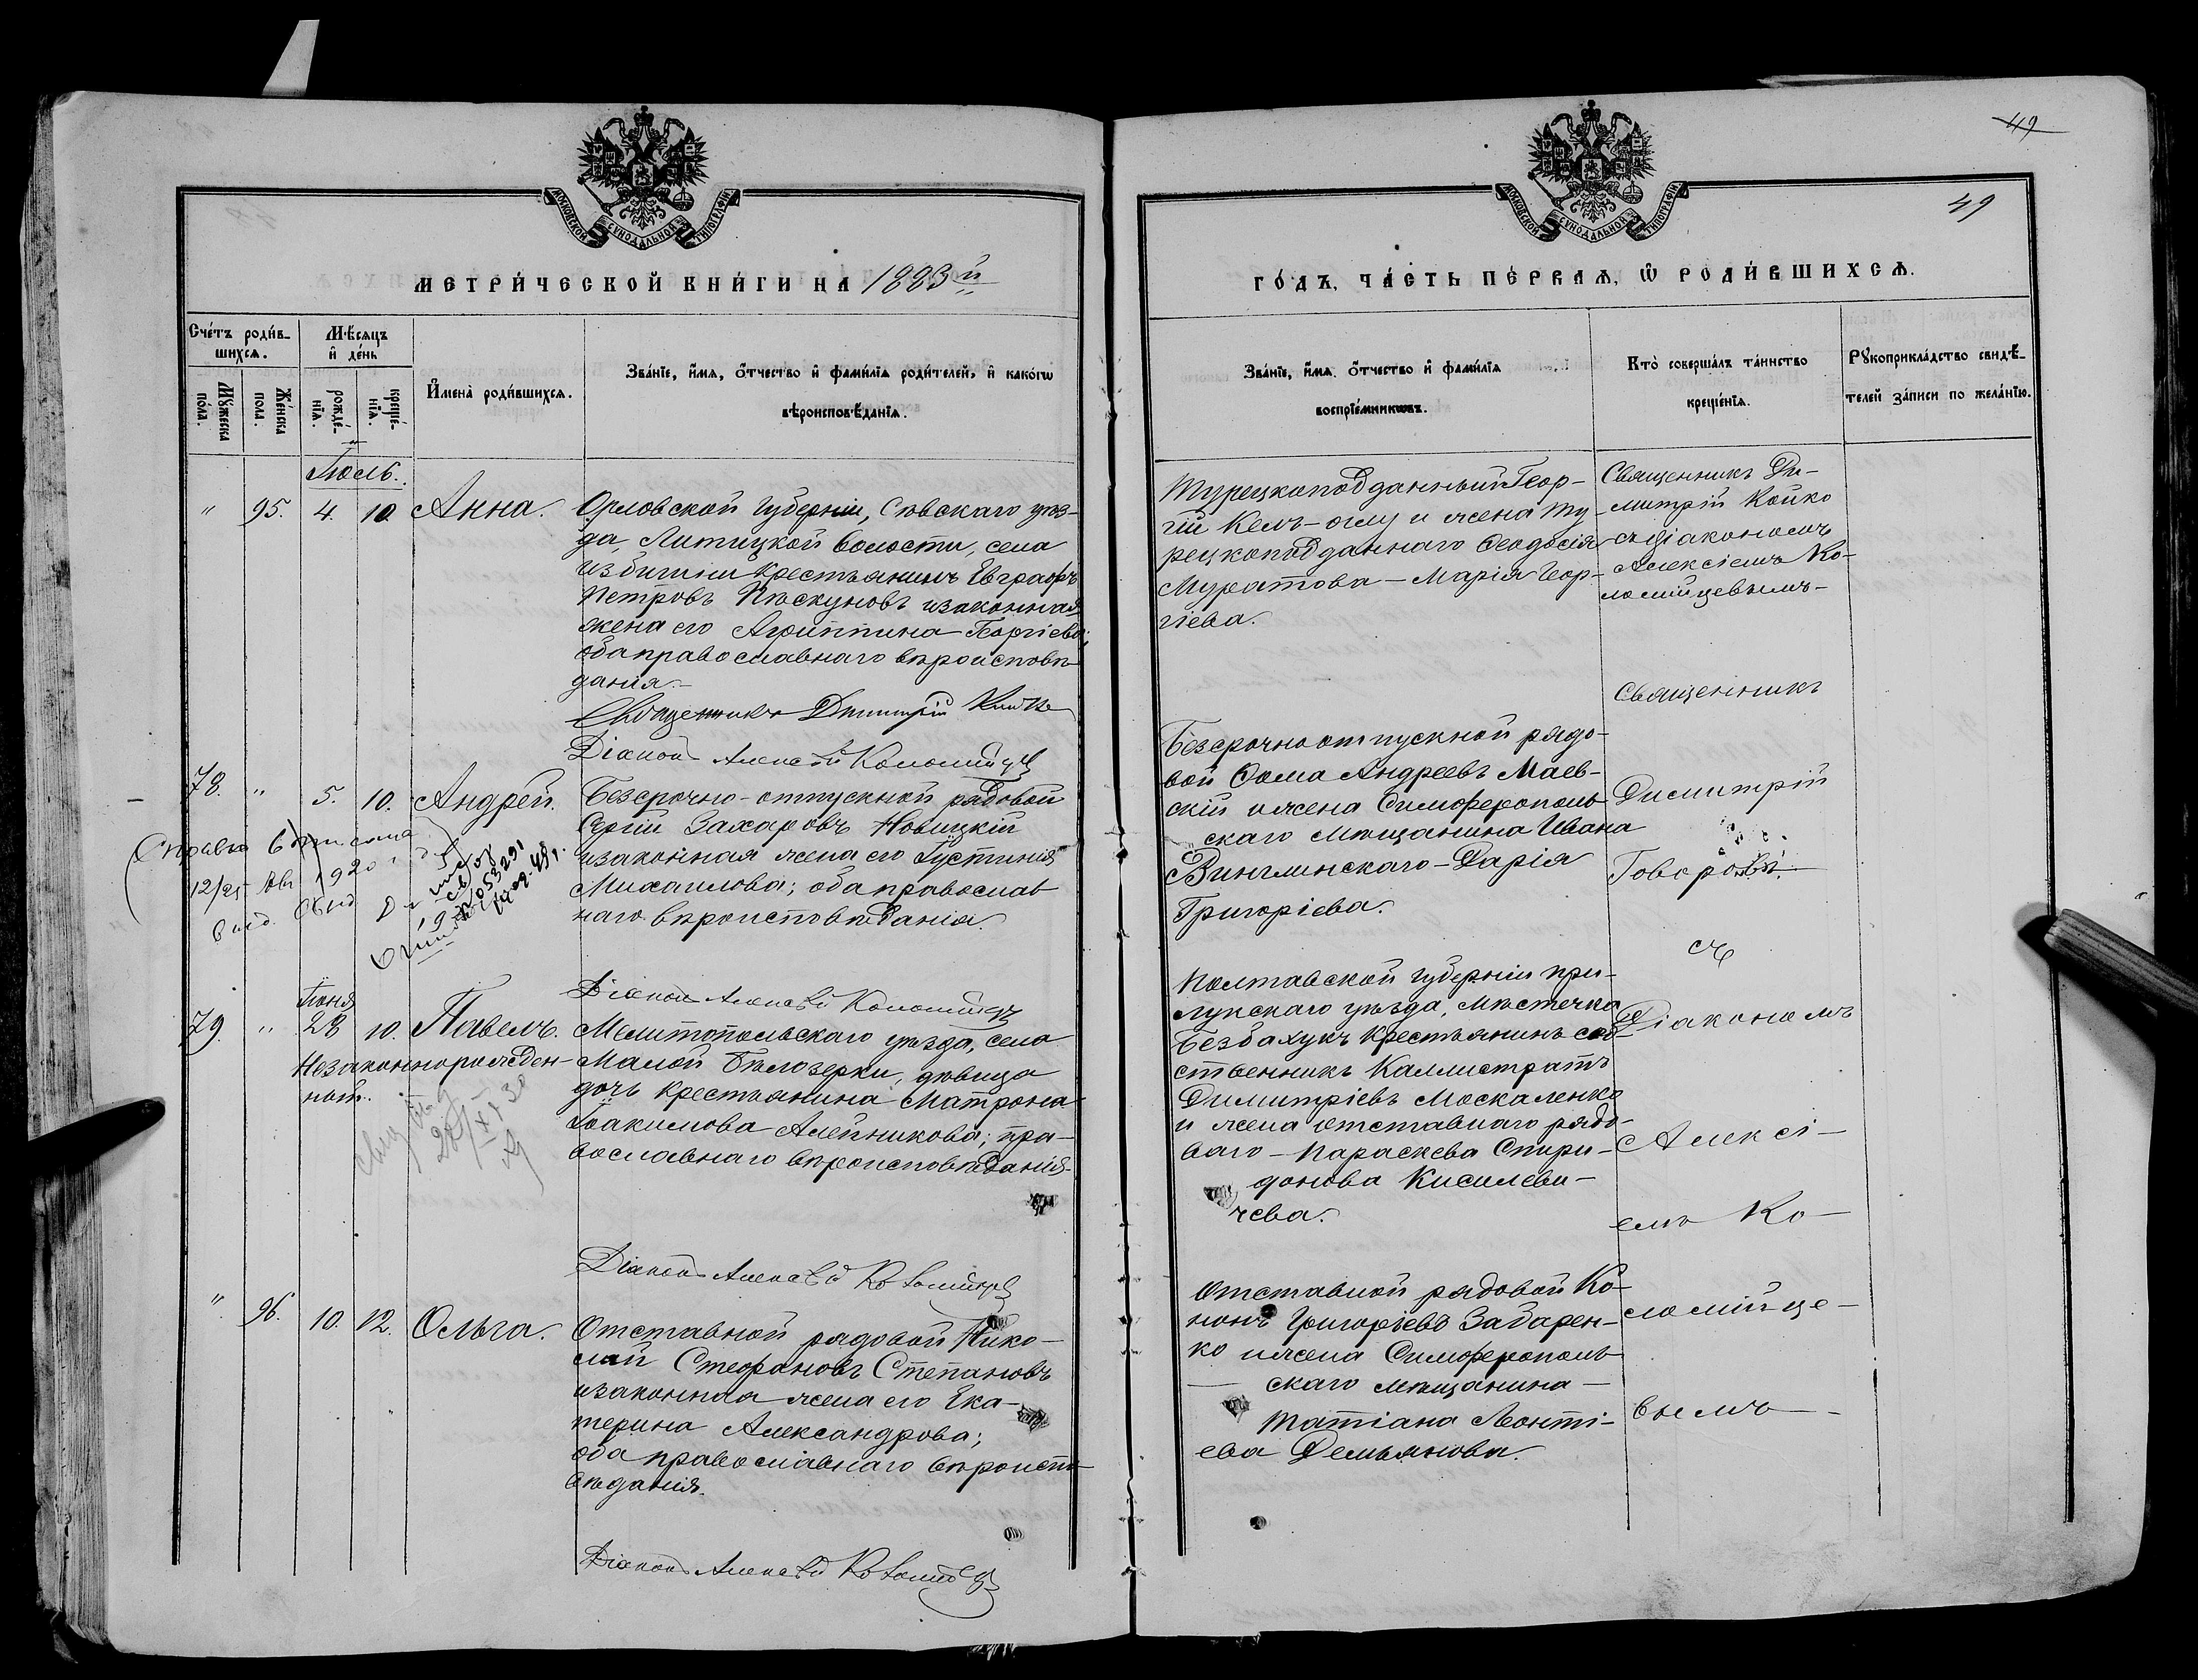 49
49
МОСКОВСКОЙ СУНОДАЛЬНОЙ ТИПОГРАФІИ
МОСКОВСКОЙ СУНОДАЛЬНОЙ ТИПОГРАФІИ
МЕТРИ́ЧЕСКОЙ КНИ́ГИ НА 1883й
Сче́тъ роди́в-
шихсѧ.
Мѣ́сѧцъ
и҆ де́нь
Мꙋ́жеска
пола.
Же́нска
пола.
рожде́-
нїѧ.
креще́-
нїѧ.
И҆мена̀ роди́вшихсѧ.
Зва́нїе, и҆́мѧ, о҆́тчество и҆ фами́лїѧ роди́телей, и҆ како́гѡ
вѣроисповѣ́данїѧ.
Іюль.
" 95. 4. 10. Анна.
Орловской губерніи, Сѣвскаго уѣз-
да, Литицкой волости, села
Избични крестьянинъ Евграфъ
Петровъ Пискуновъ и законная
жена его Агриппина Георгіева;
оба православнаго вѣроисповѣ-
данія.
Священникъ Димитрій Койко
Діаконъ Алексѣй Коломійцев
78. " 5. 10. Андрей.
Безсрочно-отпускной рядовой
Сергій Захаровъ Новицкій
и законная жена его Густинія
Михаилова; оба православ
наго вѣроисповѣданія.
Справка
12/25 1920
Діаконъ Алексѣй Коломійцев
Іюня
79. " 28 10. Павелъ.
Незаконнорожден-
ный.
Мелитопольскаго уѣзда, села
Малой Бѣлозерки, дѣвица
дочь крестьянина Матрона
Іоакимова Алейникова; пра-
вославнаго вѣроисповѣданія.
Діаконъ Алексѣй Коломійцев
" 96. 10. 12. Ольга.
Отставной рядовой Нико-
лай Стефановъ Степановъ
и законная жена его Ека-
терина Александрова;
оба православнаго вѣроиспо-
вѣданія.
Діаконъ Алексѣй Коломійцев
ГО́ДЪ, ЧА́СТЬ ПЕ́РВАѦ, Ѡ҆ РОДИ́ВШИХСѦ.
Зва́нїе, и҆́мѧ, о҆́тчество и҆ фами́лїѧ
воспрїе́мникѡвъ.
Кто̀ соверша́лъ та́инство
креще́нїѧ.
Рꙋкоприкла́дство свидѣ́-
телей за́писи по жела́нїю.
Турецкоподданный Геор-
гій Келъ-оглу и жена ту-
рецкоподданнаго Феодосія
Муратова - Марія Геор-
гіева.
Священникъ Ди-
митрій Койко
съ діакономъ
Алексіемъ Ко-
ломійцевымъ-
Безсрочноотпускной рядо-
вой Фома Андреевъ Маев-
скій и жена Симферополь
скаго мѣщанина Ивана
Винглинскаго - Дарія
Григоріева.
Полтавской губерніи при-
лукскаго уѣзда, мѣстечка
Безбахукъ крестьянинъ соб-
ственникъ Каллистратъ
Димитріевъ Москаленко
и жена отставнаго рядо-
ваго - Параскева Спири-
донова Кисилеви-
чева.
Отставной рядовой Ко-
нонъ Григоріевъ Забарен-
ко и жена Симферополь
скаго мѣщанина -
Татіана Леонті-
ева Демьянова.
Священникъ
Димитрій
Говоровъ
съ
Діакономъ
Алексі-
емъ Ко-
ломійце-
вымъ-